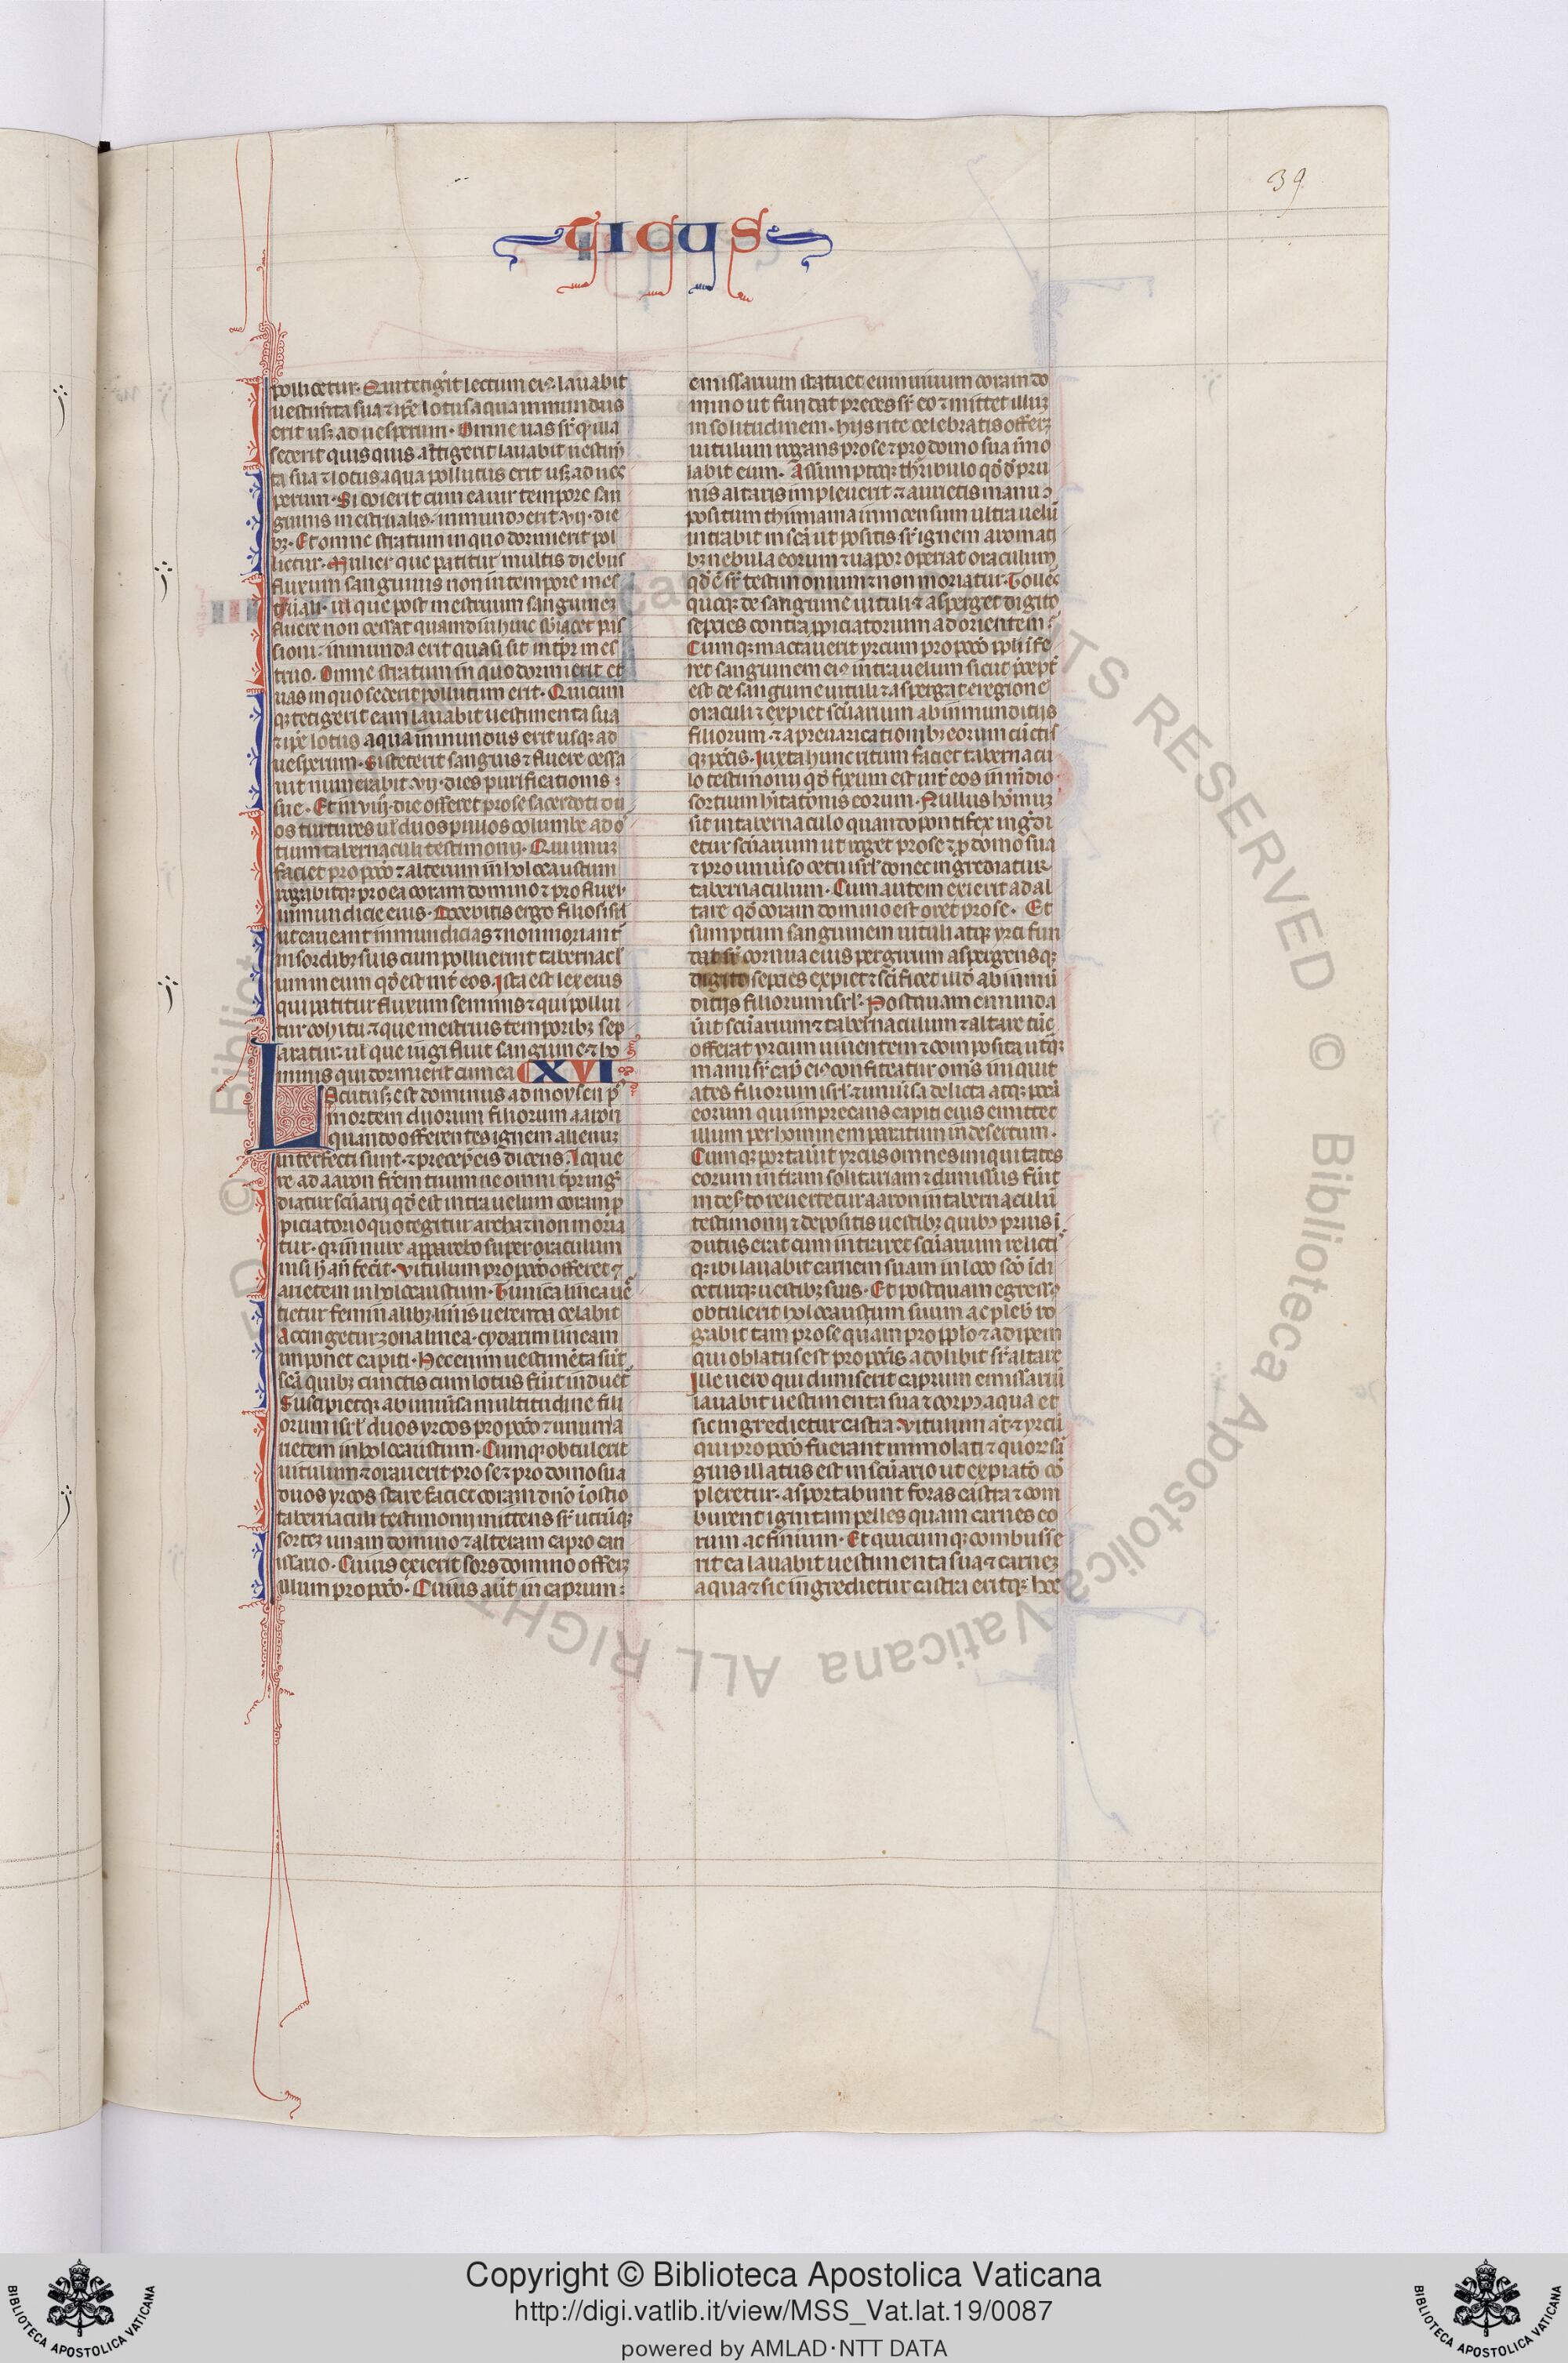 39
TICUS
polluetur. Qui tetigerit lectum eiꝰ. lauabit
uestimẽta sua ⁊ ip̃e lotus aqua inmundus
erit usꝫ ad uesperum. Omne uas sr̃ qͦ illa
sederit quis quis attigerit lauabit uestim̃
ta sua ⁊ lotus aqua pollutus erit usꝫ ad ues
perum. Si coierit cum ea uir tempore san
guinis mestrualis. inmundꝰ erit .vij. die
bꝫ. Et omne stratum in quo dormierit pol
luetur. Mulier que patitur multis diebus
fluxum sanguinis non in tempore mes
truali. ul̃ que post mestruum sanguinem
fluere non cessat quamdiu huic sb̃iacet pas
sioni. inmunda erit quasi sit in tp̃r mes
truo. Omne stratum in quo dormierit et
uas in quo sederit pollutum erit. Quicum
qꝫ tetigerit eam lauabit uestimenta sua
⁊ ip̃e lotus aqua inmundus erit usqꝫ ad
uesperum. Si steterit sanguis ⁊ fluere cessa
uit numerabit .vij. dies purificationis
sue. Et in viij. die offeret pro se sacerdoti du
os turtures ul̃ duos pullos columbe ad o
tium tabernaculi testimonij. Qui unum
faciet pro pctõ ⁊ alterum in holocaustum
rogabitqꝫ pro ea coram domino ⁊ pro fluxu
inmundicie eius. Docebitis ergo filios isr̃l
ut caueant inmundicias ⁊ non moriant̃
in sordibꝫ suis cum polluerint tabernacl̃
um meum qd̃ est int̃ eos. Ista est lex eius
qui patitur fluxum seminis ⁊ qui pollui
tur cohitu. ⁊ que mestruis temporibꝫ sep
aratur. ul̃ que iugi fluit sanguine. ⁊ ho
minis qui dormierit cum ea XVI
Locutusꝫ est dominus ad moysen p̃
mortem duorum filiorum aaron
quando offerentes ignem alienum
interfecti sunt. ⁊ precep̃ eis dicens. loque
re ad aaron fr̃em tuum ne omni tp̃r ingͥ
diatur scũarij qd̃ est intra uelum coram p
piciatorio quo tegitur archa ⁊ non moria
tur. qꝛ in nube apparebo super oraculum
nisi h̃ an̄ fecit. Vitulum pro pctõ offeret ⁊
arietem in holocaustum. Tunica linea ue
tietur feminalibꝫ liniis uerenda celabit
Accingetur zona linea. cydarim lineam
imponet capiti. Hec enim uestimẽta sũt
scã quibꝫ cunctis cum lotus fũit induet̃
Suscipietqꝫ ab uniuͥsa multitudine fili
orum isrl̃ duos yrcos pro pctõ ⁊ unum a
rietem in holocaustum. Cumqꝫ obtulerit
uitulum ⁊ orauerit pro se ⁊ pro domo sua
duos yrcos stare faciet coram dnõ i ostio
tabernaculi testimonij mittens sr̃ utrũqꝫ
sortem unam domino ⁊ alteram capro emi
ssario. Cuius exierit sors domino offerꝫ
illum pro pctõ. Cuius aũt in caprum
emissarium statuet eum uiuum coram do
mino ut fundat preces sr̃ eo ⁊ mittet illum
in solitudinem. hijs rite celebratis offerꝫ
uitulum rogans pro se ⁊ pro domo sua ĩmo
labit eum. Assumptoqꝫ thuribulo qd̃ d̃ pru
nis altaris impleuerit ⁊ auriens manu ꝯ
positum thimiama in incensum ultra uelũ
intrabit in scã ut positis sr̃ ignem aromati
bꝫ nebula eorum ⁊ uapor operiat oraculum
qd̃ ẽ sr̃ testimonium ⁊ non moriatur. Tollet
quoqꝫ de sanguine uituli ⁊ asperget digito
sepcies contra ppiciatorium ad orientem.
Cumqꝫ mactauerit yrcum pro pctõ ppli ĩfe
ret sanguinem eiꝰ intra uelum sicut p̃cept̃
est de sanguine uituli ⁊ aspergat e regione
oraculi ⁊ expiet scũarium ab inmunditijs
filiorum. ⁊ a preuaricationibꝫ eorum cũctis
qꝫ pctis. Iuxta hunc ritum faciet tabernacu
lo testimonij qd̃ fixum est int̃ eos in mẽdio
sortium hĩtationis eorum. Nullus hõminum
sit in tabernaculo quando pontifex ingͥdi
etur scũarium ut roget pro se ⁊ p̃ domo sua
⁊ pro uniuͥso cetu isrl̃ donec ingrediatur
tabernaculum. Cum autem exierit ad al
tare qd̃ coram domino est oret pro se. Et
sumptum sanguinem uituli atqꝫ yrci fun
dat sr̃ cornua eius per girum aspergensqꝫ
digito sepcies expiet ⁊ scĩficet illd̃ ab inmũ
ditijs filiorum isrl̃. Postquam emunda
ũit scũarium ⁊ tabernaculum ⁊ altare tũc
offerat yrcum uiuentem ⁊ composita utqꝫ
manu sr̃ cap̃ eiꝰ confiteatur om̃s iniquit
ates filiorum isrl̃ ⁊ uniuͥsa delicta atqꝫ pctã
eorum qui imprecans capiti eius emittet
illum per hominem paratum in desertum.
Cumqꝫ portaũit yrcus omnes iniquitates
eorum in tr̃am solitariam ⁊ dimissus fũit
in des̃to reuertetur aaron in tabernaculũ
testimonij ⁊ depositis uestibꝫ quibꝰ prius ĩ
dutus erat cum intraret scũarium relicti
qꝫ ibi lauabit carnem suam in loco scõ ĩdu
eturqꝫ uestibꝫ suis. Et postquam egressꝰ
obtulerit holocaustum suum ac pleb̃ ro
gabit tam pro se quam pro pplo ⁊ adipem
qui oblatus est pro pctis adolibit sr̃ altare
Ille uero qui dimiserit caprum emissariũ
lauabit uestimenta sua ⁊ corpꝰ aqua et
sic ingredietur castra. Vitulum aũt ⁊ yrcũ
qui pro pctõ fuerant immolati ⁊ quoꝝ sã
guis illatus est in scũario ut expiatõ cõ
pleretur. asportabunt foras castra ⁊ com
burent igni tam pelles quam carnes eo
rum ac fimum. Et quicumqꝫ combusse
rit ea lauabit uestimenta sua ⁊ carnem
aqua ⁊ sic ingredietur castra eritqꝫ hoc
© Biblioteca Apostolica Vaticana ALL RIGHTS RESERVED
Copyright © Biblioteca Apostolica Vaticana
http://digi.vatlib.it/view/MSS_Vat.lat.19/0087
powered by AMLAD·NTT DATA
BIBLIOTECA APOSTOLICA VATICANA
BIBLIOTECA APOSTOLICA VATICANA